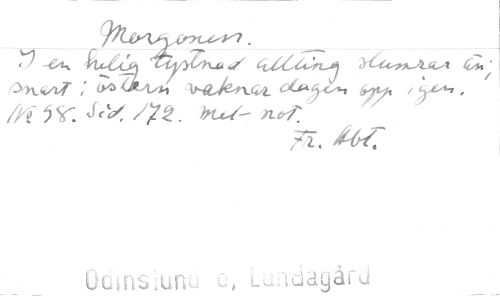 Morgonen.
I en helig tystnad allting slumrar än;
snart i östern vaknar dagen opp igen.
No 98. Sid. 172. Met not.
Fr. Abt.
Odinslund o, Lundagård